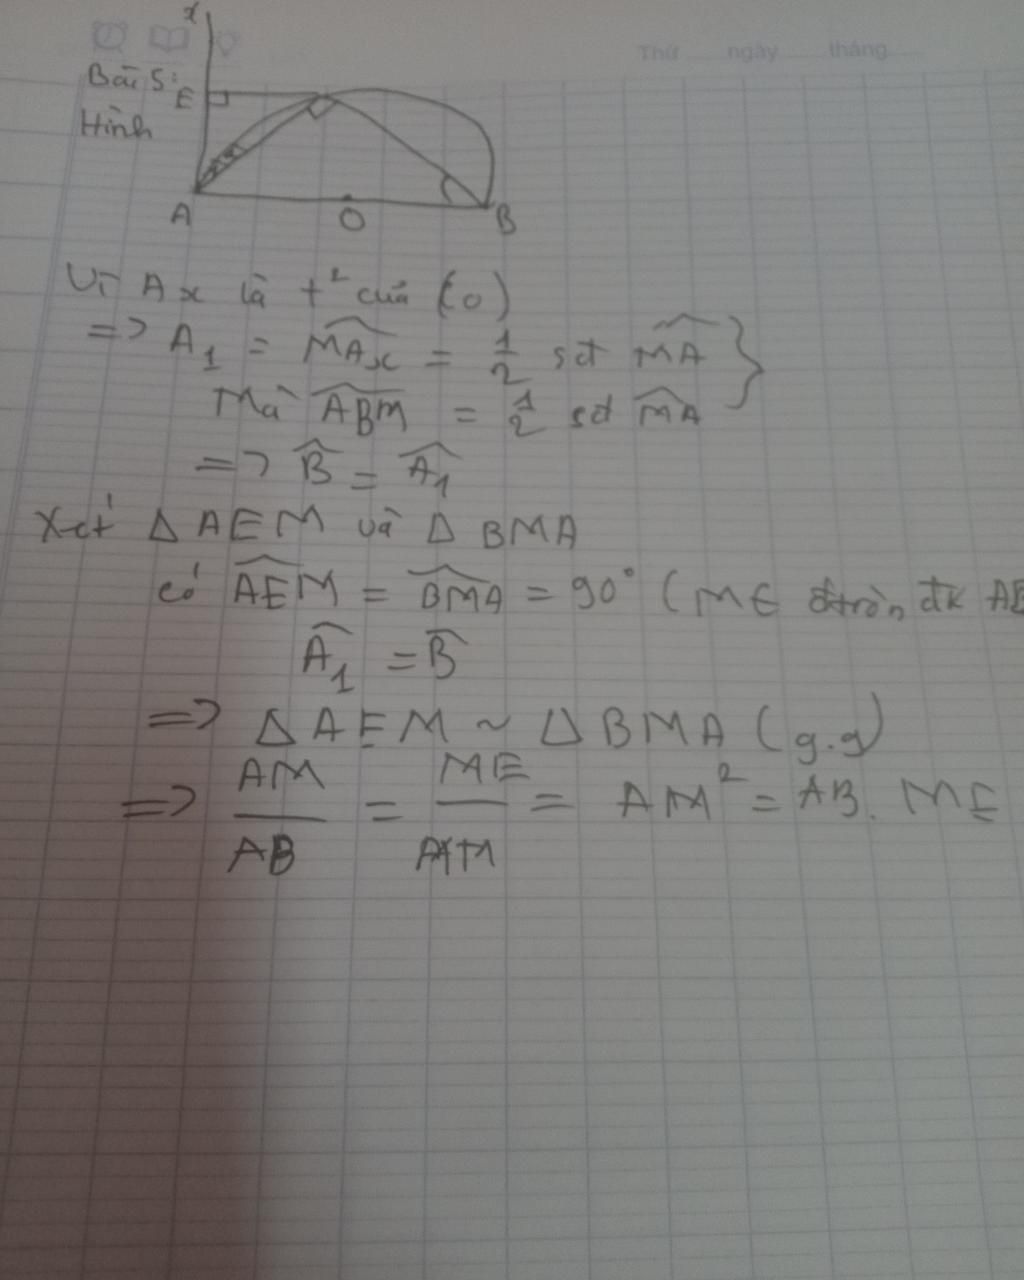 Thứ ngày tháng
x
Bài 5:
E
Hình
A O B
Vì Ax là t² của (O)
=> A₁ = MAx = 1/2 sđ MA
Mà ABM = 1/2 sđ MA
=> B = A₁
Xét Δ AEM và Δ BMA
có AEM = BMA = 90° (M∈ đtròn đk AB
A₁ = B
=> Δ AEM ~ Δ BMA (g.g)
=> AM/AB = ME/AM = AM² = AB. ME